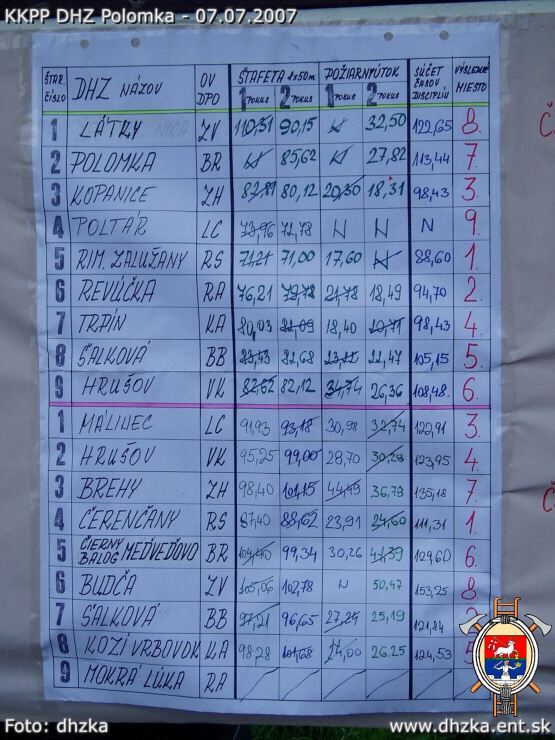 KKPP DHZ Polomka - 07.07.2007
ŠTAR. ČÍSLO DHZ NÁZOV OV DPO ŠTAFETA 4x50m 1 POKUS 2 POKUS POŽIARNY ÚTOK 1 POKUS 2 POKUS SÚČET ČASOV DISCIPLÍN VÝSLEDNÉ MIESTO
1 LÁTKY ZV 110,31 90,15 N 32,50 122,65 8.
2 POLOMKA BR N 85,62 N 27,82 113,44 7.
3 KOPANICE ZH 82,81 80,12 20,30 18,31 98,43 3.
4 POLTÁR LC 73,96 72,78 N N N 9.
5 RIM. ZALUŽANY RS 71,21 71,00 17,60 N 88,60 1.
6 REVÚČKA RA 76,21 79,78 21,78 18,49 94,70 2.
7 TRPÍN KA 80,03 18,40 98,43 4.
8 ŠALKOVÁ BB 82,68 22,47 105,15 5.
9 HRUŠOV VK 82,62 82,12 34,74 26,36 108,48 6.
1 MALINEC LC 91,93 93,18 30,98 32,74 122,91 3.
2 HRUŠOV VK 95,25 99,00 28,70 30,28 123,95 4.
3 BREHY ZH 98,40 101,15 44,49 36,78 135,18 7.
4 ČERENČANY RS 87,40 88,62 23,91 24,60 111,31 1.
5 ČIERNY BALOG MEDVEĎOVO BR 104,40 99,34 30,26 41,39 129,60 6.
6 BUDČA ZV 105,06 102,78 N 50,47 153,25 8.
7 ŠALKOVÁ BB 97,21 96,65 27,24 25,19 121,84
8 KOZÍ VRBOVOK KA 98,28 101,68 26,25 124,53
9 MOKRÁ LÚKA RA
Foto: dhzka
www.dhzka.ent.sk